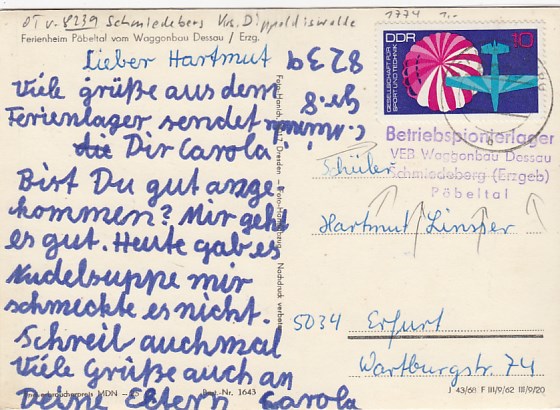 OT v. 8239 Schmiedeberg Krs. Dippoldiswalde
Ferienheim Pöbeltal vom Waggonbau Dessau / Erzg.
Lieber Hartmut
Viele grüße aus dem
Ferienlager sendet
die Dir Carola
Bist Du gut ange
kommen? Mir geht
es gut. Heute gab es
Nudelsuppe mir
schmeckte es nicht.
Schreib auchmal
Viele Grüße auch an
Deine Eltern Carola
Best.-Nr. 1643
Nachdruck verboten
1774 1,-
DDR 10
GESELLSCHAFT FÜR
SPORT UND TECHNIK
Betriebspionierlager
VEB Waggonbau Dessau
Schmiedeberg (Erzgeb)
Pöbeltal
Schüler
Hartmut Linsser
5034 Erfurt
Wartburgstr. 74
J 43/68 F III/9/62 III/9/20